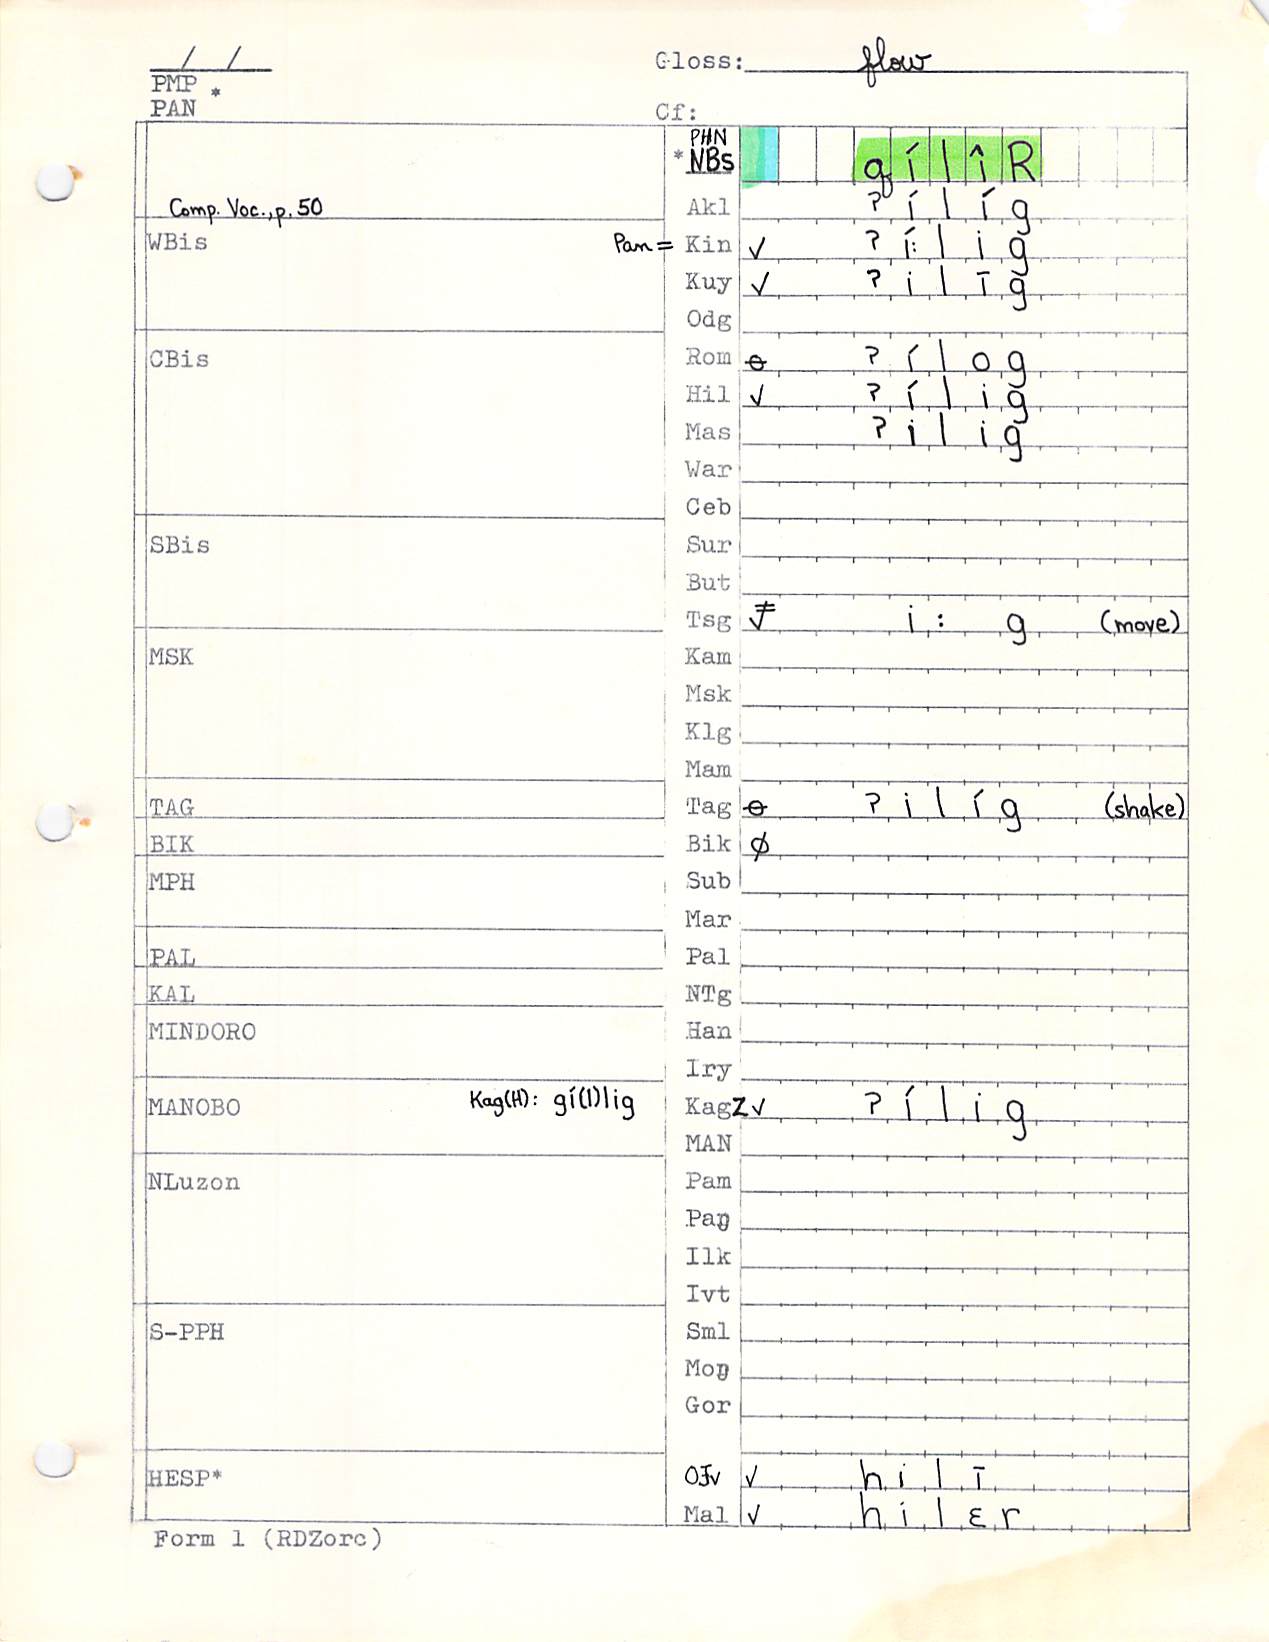 / /
Gloss: flow
PMP *
PAN
Cf:
PHN
* NBs qílîR
Comp. Voc., p. 50
Akl ʔílíg
WBis
Pan = Kin ✓ ʔí:lig
Kuy ✓ ʔilīg
Odg
CBis
Rom ɵ ʔílog
Hil ✓ ʔílig
Mas ʔilig
War
Ceb
SBis
Sur
But
Tsg i: g (move)
MSK
Kam
Msk
Klg
Mam
TAG
Tag ɵ ʔilíg (shake)
BIK
Bik ∅
MPH
Sub
Mar
PAL
Pal
KAL
NTg
MINDORO
Han
Iry
MANOBO
Kag(H): gí(l)lig
KagZ ✓ ʔílig
MAN
NLuzon
Pam
Paŋ
Ilk
Ivt
S-PPH
Sml
Moŋ
Gor
HESP*
OJv ✓ hilī
Mal ✓ hilɛr
Form 1 (RDZorc)